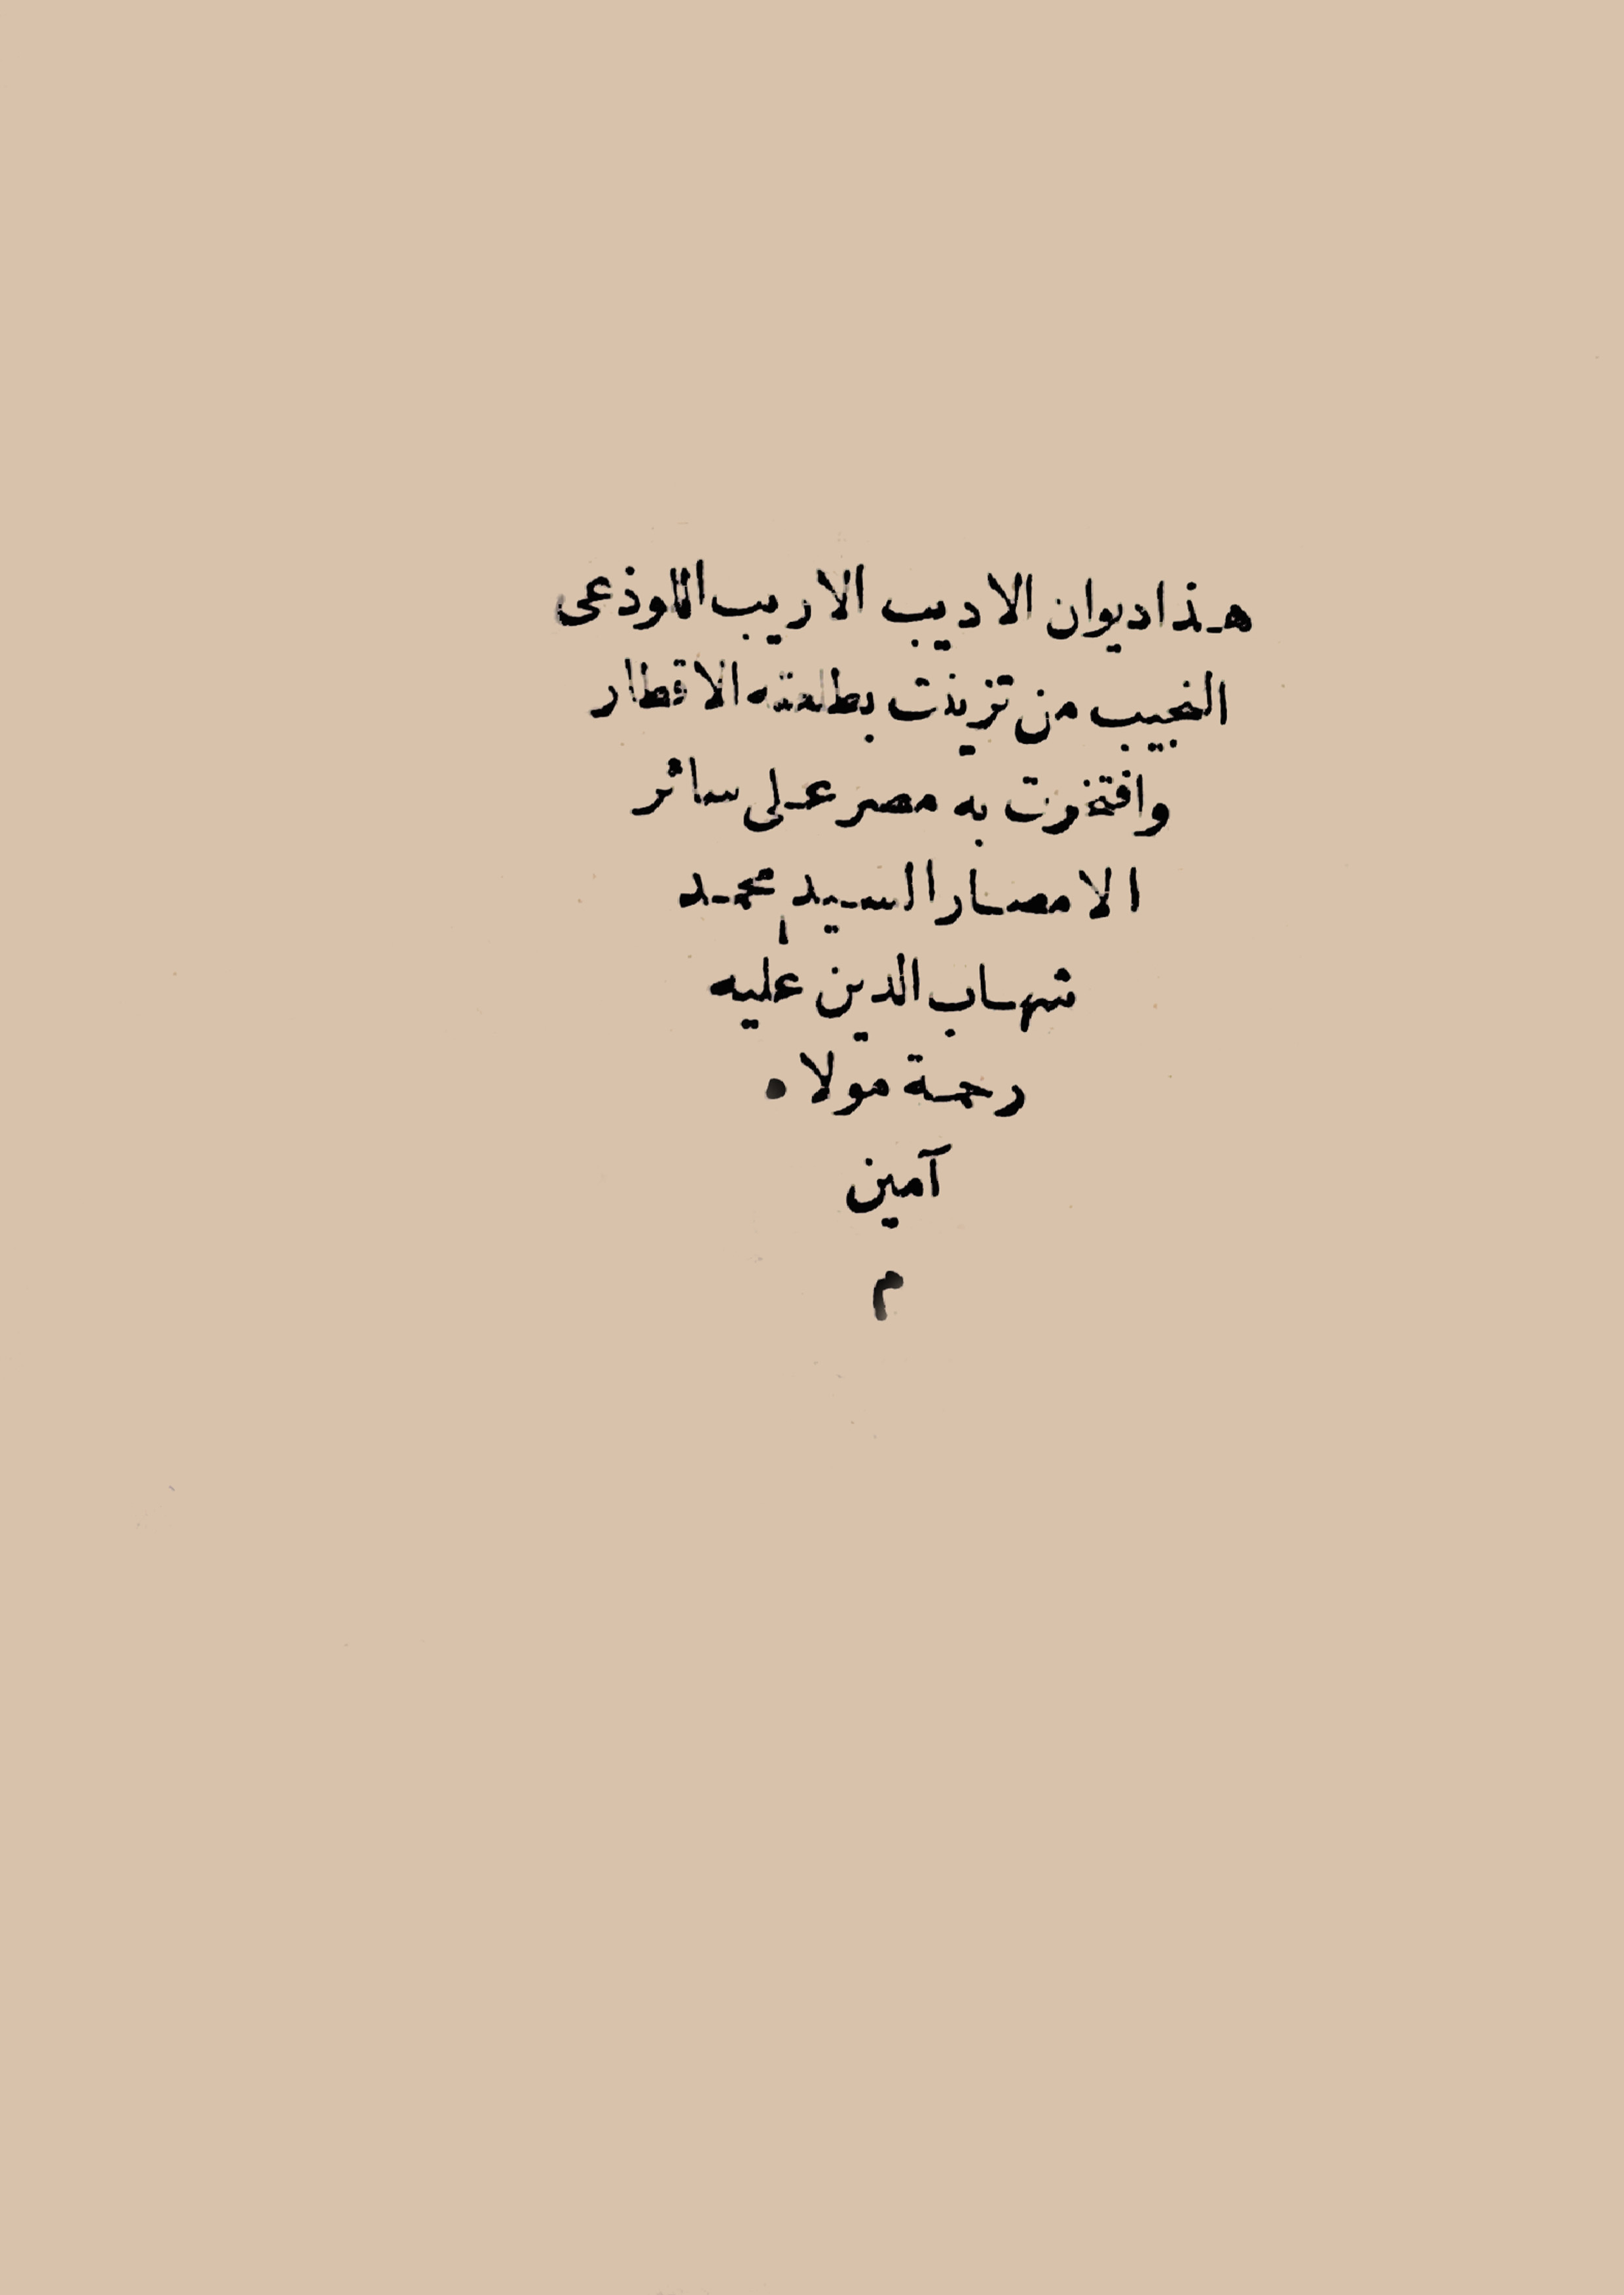 هذا ديوان الاديب الاريب اللوذعى
النجيب من تزينت بطلعته الاقطار
وافتخرت به مصر على سائر
الامصار السيد محمد
شهاب الدين عليه
رحمة مولاه
آمين
م